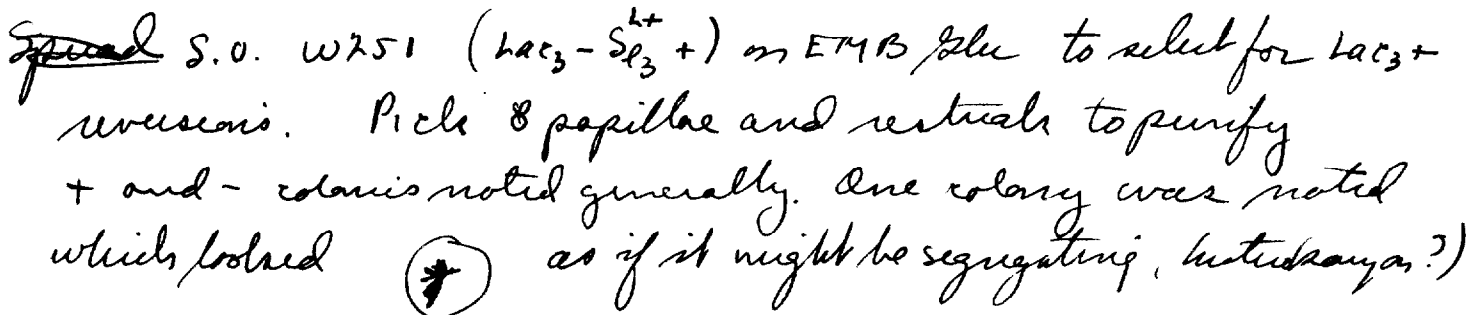 S.O. W251 (Lac₃- + ) on EMB Glu to select for Lac₃+
reversions. Pick 8 papillae and restreak to purify
+ and - colonies noted generally. One colony was noted
which looked as if it might be segregating, heterokaryon?)